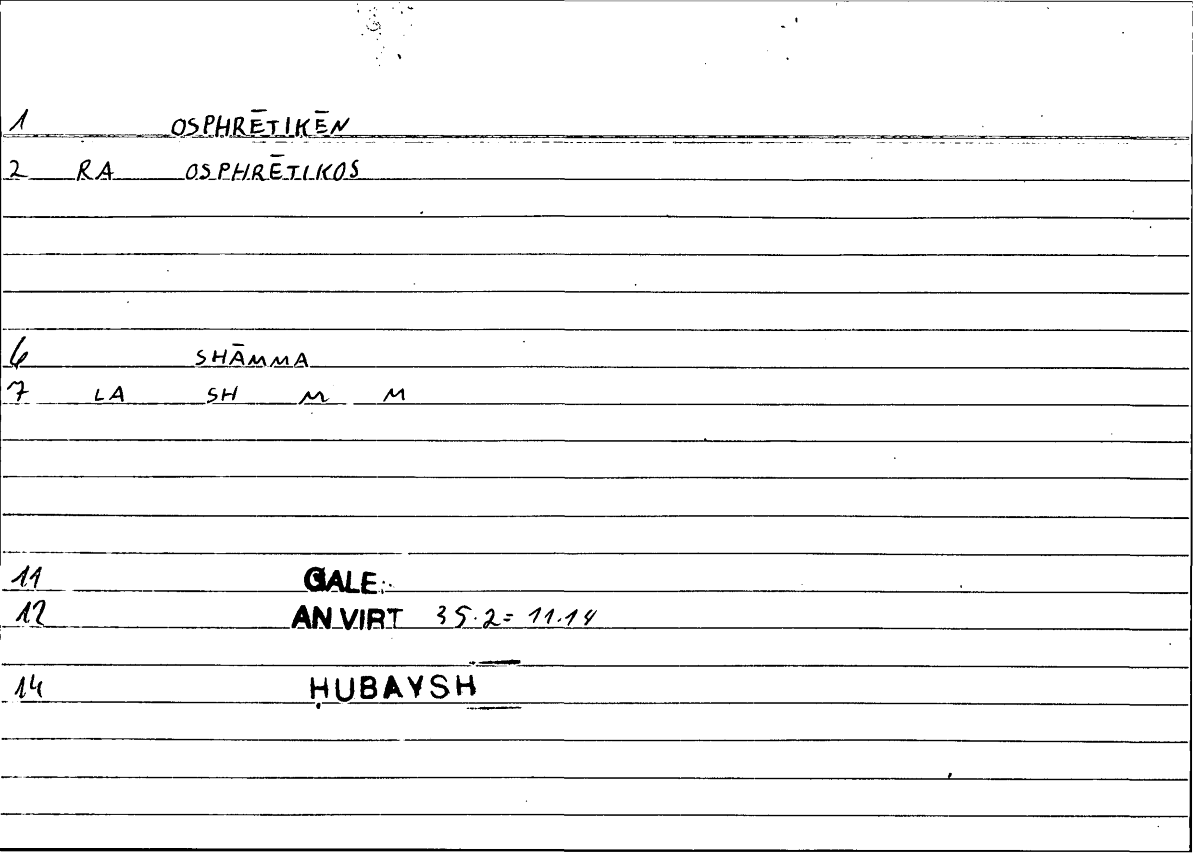 1 OSPHRĒTIKĒN
2 RA OSPHRĒTIKOS
6 SHĀMMA
7 LA SH M M
11 GALE
12 AN VIRT 35.2 = 11.14
14 ḤUBAYSH